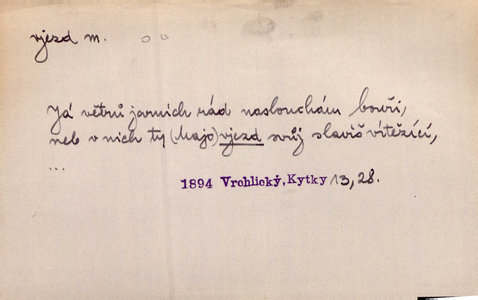 vjezd m. o o
Já větrů jarních rád naslouchám bouři,
neb v nich ty (Máji) vjezd svůj slavíš vítězící,
...
1894 Vrchlický, Kytky 13, 28.